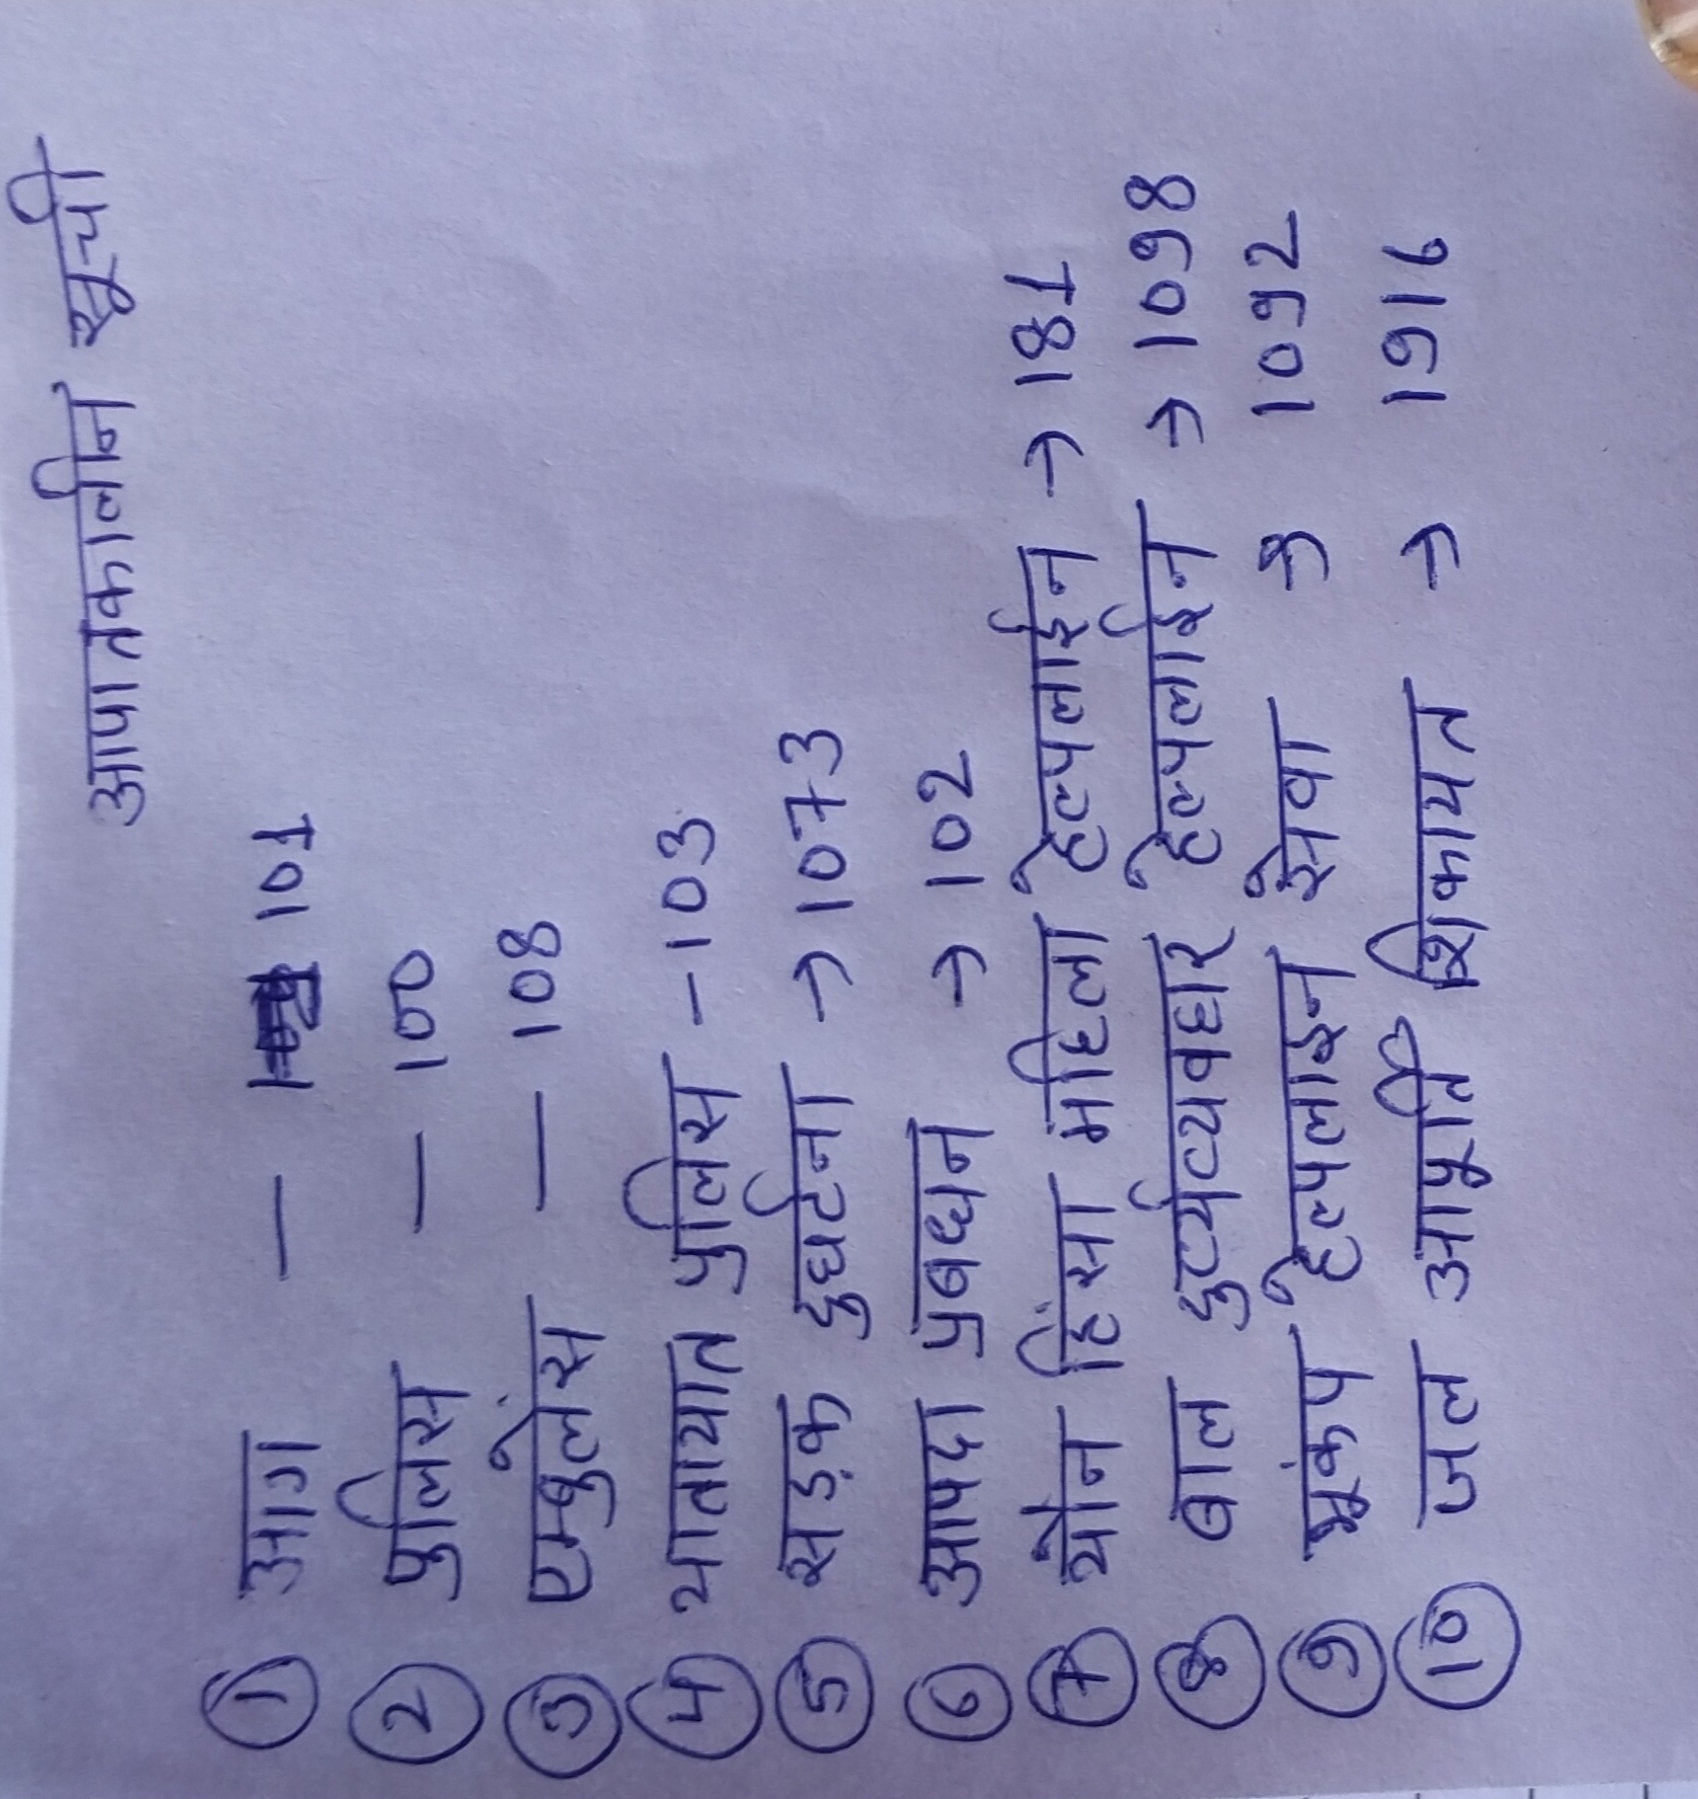 आपातकालीन सूची
① आग — 101
② पुलिस — 100
③ एम्बुलेंस — 108
④ यातायात पुलिस - 103
⑤ सड़क दुर्घटना → 1073
⑥ आपदा प्रबधन → 102
⑦ यौन हिंसा महिला हेल्पलाईन → 181
⑧ बाल दुर्व्यवहार हेल्पलाईन → 1098
⑨ भूकंप हेल्पलाइन सेवा → 1092
⑩ जल आपूर्ति शिकायत → 1916